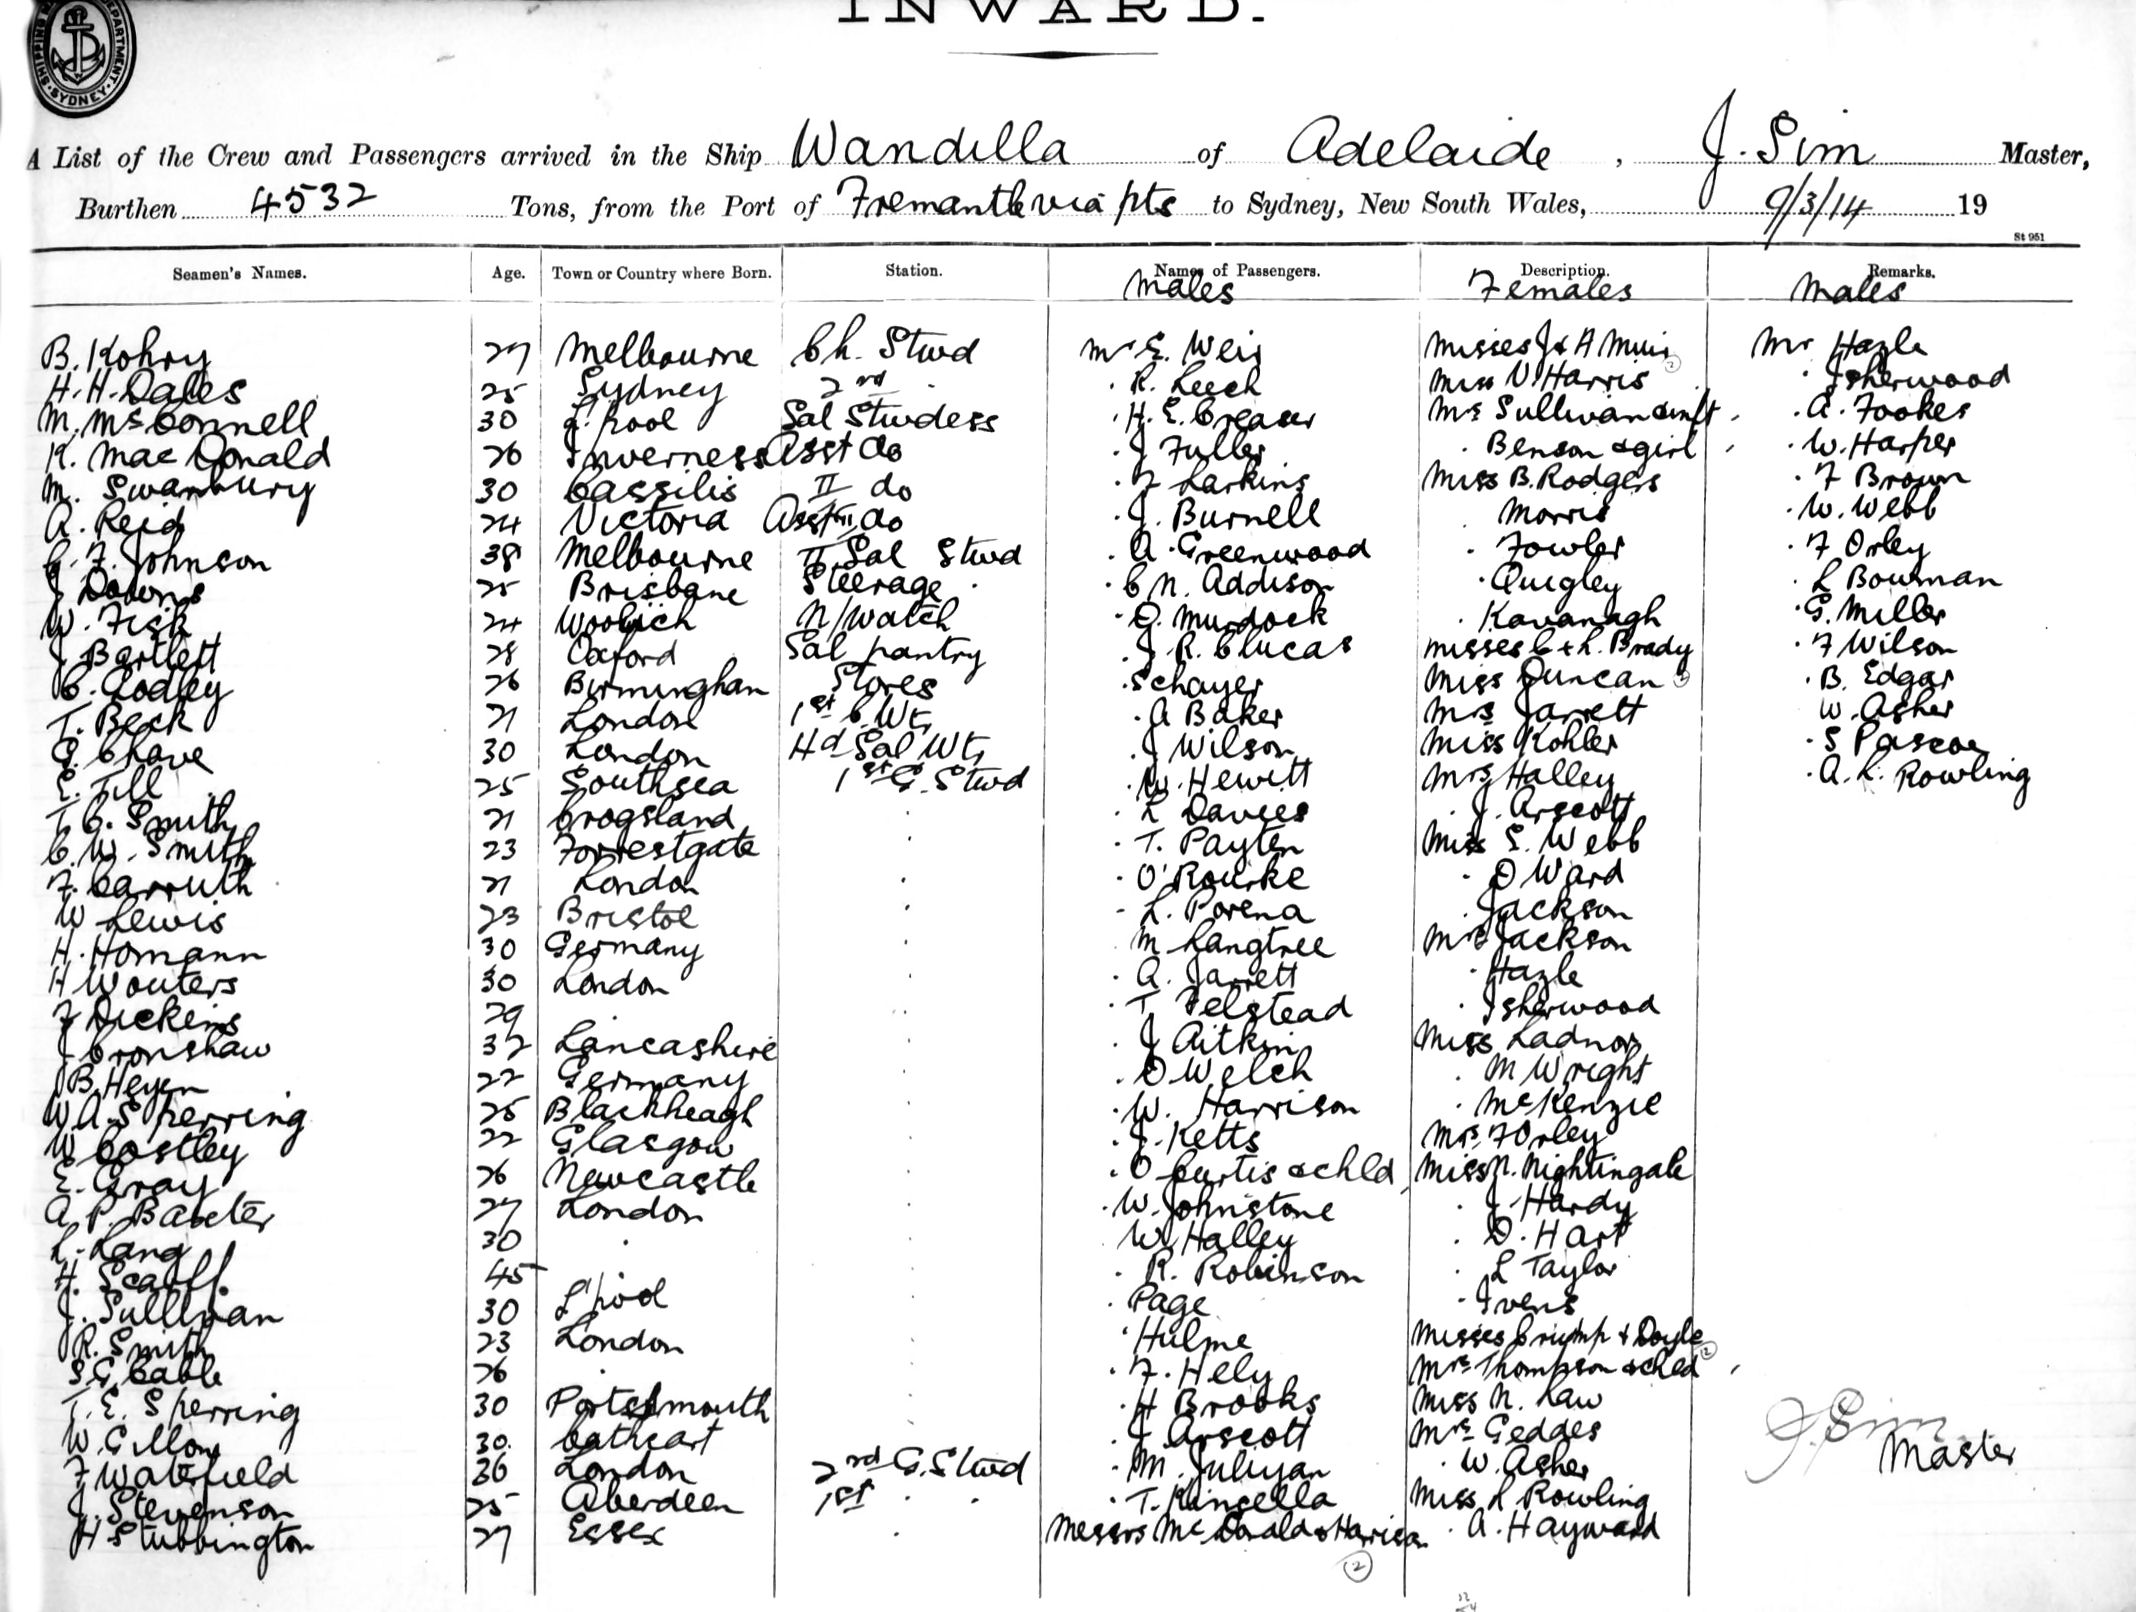 INWARD.
SHIPPING DEPARTMENT. SYDNEY.
A List of the Crew and Passengers arrived in the Ship Wandilla of Adelaide, J. Sim Master,
Burthen 4532 Tons, from the Port of Fremantle via pts to Sydney, New South Wales, 9/3/14 19
St 951
Seamen's Names. Age. Town or Country where Born. Station. Names of Passengers. Description. Remarks.
Males Females Males
B. Kohry 27 Melbourne Ch. Stwd Mr E. Weir Misses J & A Muir (2) Mr Hazle
H. H. Dales 25 Sydney 2nd " R. Leech Miss V. Harris " Isherwood
M. McConnell 30 L'pool Sal Stwdess " H. E. Creaser Mrs Sullivan & inft " A. Fookes
K. MacDonald 26 Inverness Asst do " J Fuller " Benson & girl " W. Harper
M. Swanbury 30 Cassilis II do " F Larkins Miss B. Rodgers " F Brown
A. Reid 24 Victoria Asst II do " J. Burnell " Morris " W. Webb
C. F. Johnson 38 Melbourne II Sal Stwd " A. Greenwood " Fowler " F Orley
J Downs 25 Brisbane Steerage " " C N. Addison " Quigley " L Bowman
W. Fisk 24 Woolich N/watch " O. Murdock " Kavanagh " G. Miller
J. Bartlett 28 Oxford Sal pantry " J. R. Clucas Misses C & L. Brady " F Wilson
C. Godley 26 Birmingham Stores " Schayer Miss Duncan (2) " B. Edgar
T. Beck 21 London 1st C. Wtr " A Baker Mrs Jarrett W. Asher
G. Chave 30 London Hd Sal Wtr " J Wilson Miss Kohler " S Pascoe
E. Till 25 Southsea 1st G. Stwd " W. Hewitt Mrs Halley " A. L. Rowling
T. C. Smith 21 Crogsland " " L Davies " J. Arscott
C. W. Smith 23 Forrestgate " " T. Payten Miss E. Webb
F. Carruth 21 London " " O'Rourke " O Ward
W Lewis 23 Bristol " " L. Porena " Jackson
H. Homann 30 Germany " M Langtree Mrs Jackson
H Wouters 30 London " " A. Jarrett " Hazle
F Dickens 29 " " " T. Felstead " Isherwood
J Cronshaw 32 Lancashire " " J Aitkin Miss Ladnor
B. Heyen 22 Germany " " O Welch " M Wright
W A. Sperring 25 Blackheagh " " W. Harrison " McKenzie
W Costley 22 Glasgow " " J. Ketts Mrs F Orley
E. Gray 26 Newcastle " " O Curtis & chld Miss N. Nightingale
A. P. Baxter 27 London " " W. Johnstone " J Hardy
L. Lang 30 " " W Halley " O. Hart
H. Scarff 45 " " R. Robinson " L Taylor
J. Sullivan 30 L'pool " " Page " Ivens
R. Smith 23 London " " Hulme Misses Crump & Doyle (2)
S. G. Cable 26 " " " F. Hely Mrs Thompson & chld
T. E. Sperring 30 Portsmouth " " H Brooks Miss N. Law
W. Gillon 30 Cathcart " " J Arscott Mrs Geddes J. Sim
F Watefield 36 London 2nd G. Stwd " M. Julyan " W. Asher Master
J. Stevenson 25 Aberdeen 1st " " " T. Kinsella Miss L Rowling
H Stubbington 27 Essex " Messrs McDonald & Harrison " A. Hayward
(2)